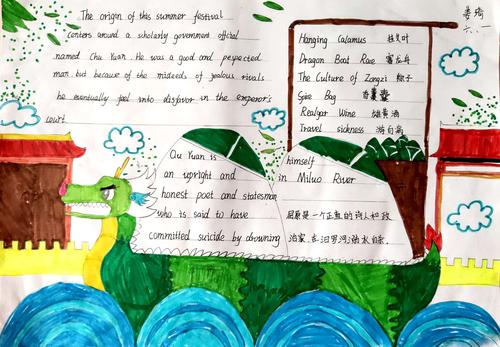 The origin of this summer festival
centers around a scholarly government official
named Chu Yuan. He was a good and respected
man but because of the misdeeds of jealous rivals
he eventually feel into disfavor in the emperor's
court
Hanging Calamus 挂艾叶
Dragon Boat Race 赛龙舟
The Culture of Zongzi 粽子
Spice Bag 香囊
Realgar Wine 雄黄酒
Travel sickness 游百病
六、一
Qu Yuan is
an upright and
honest poet and statesman
who is said to have
committed suicide by drowning
himself
in Miluo River
屈原是一个正直的诗人和政
治家,在汨罗河溺水自杀.